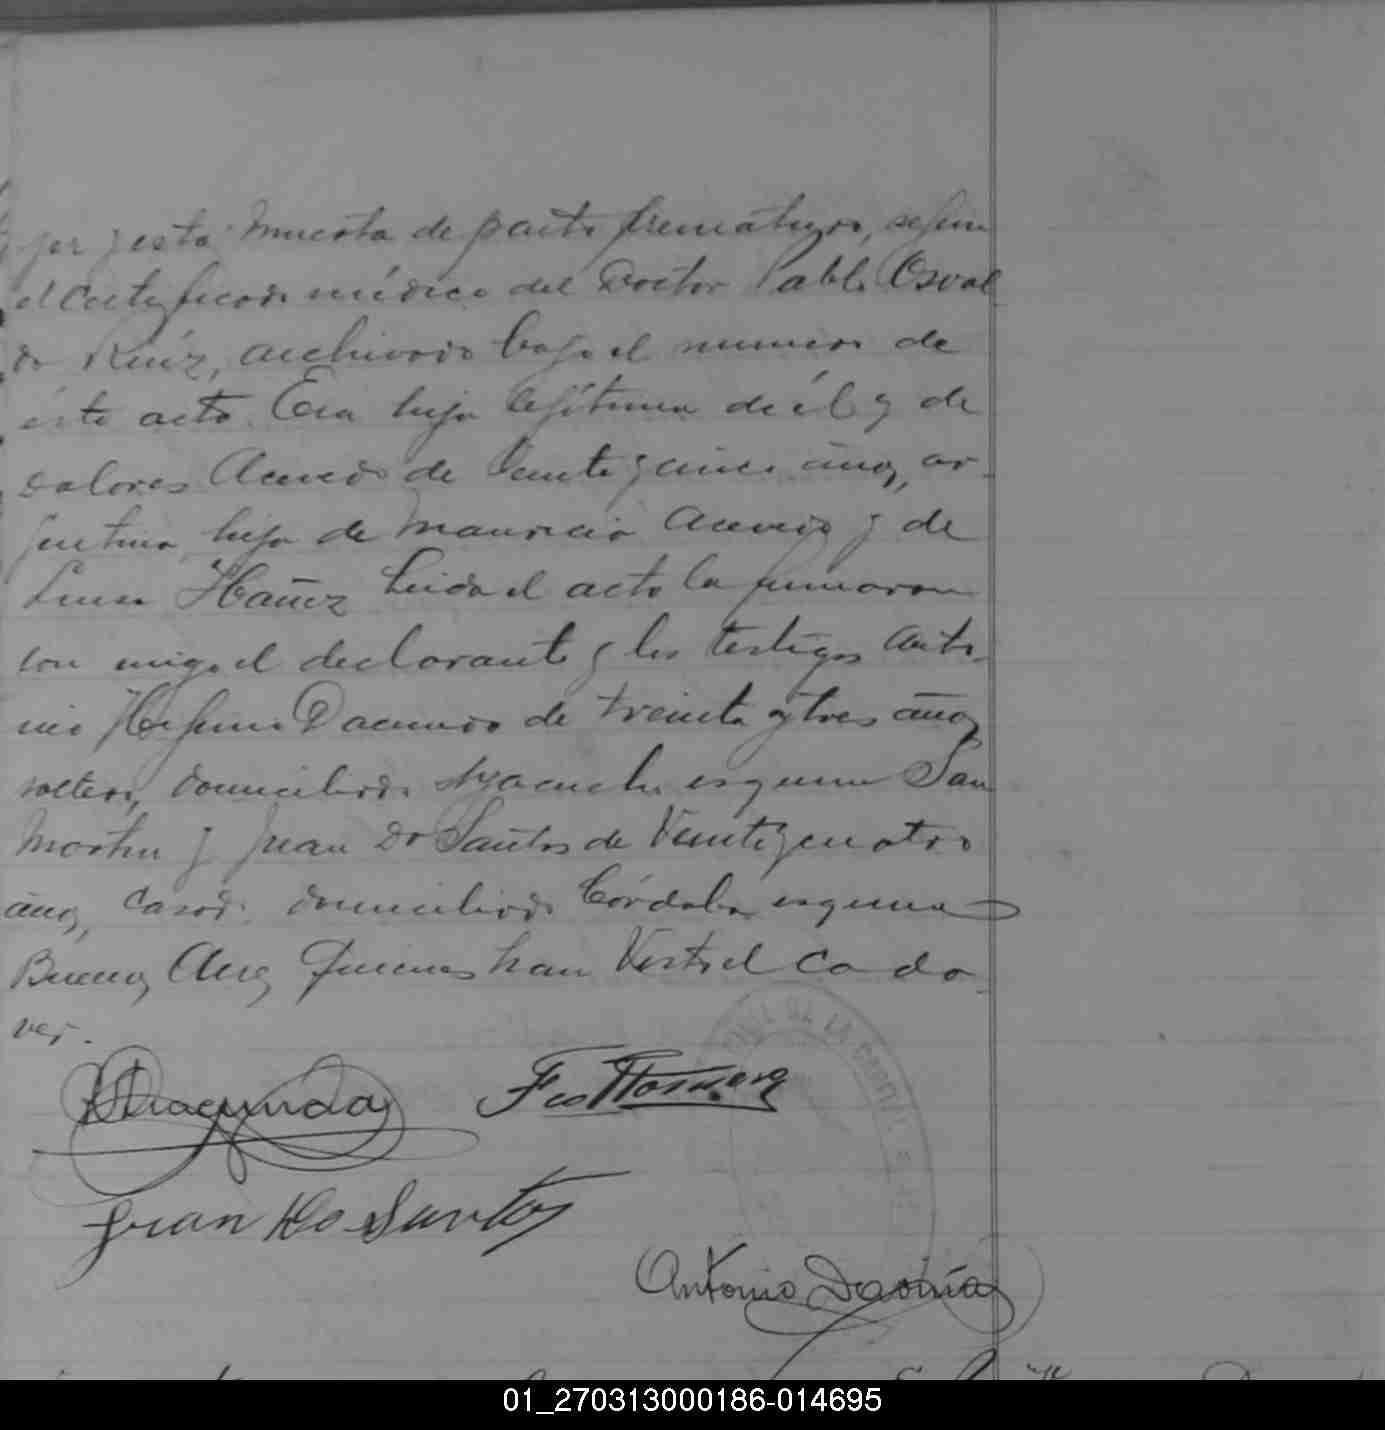 jer y esta muerta de parto prematuro, segun
el certificado médico del Doctor Pablo Osval
do Ruíz, archivado bajo el numero de
ésta acta. Era hija legítima de él y de
Dolores Acevedo de veinte y cinco años, ar-
gentina, hija de Mauricio Acevedo y de
Luisa Ibañez Leida el acta la firmaron
con migo el declarante y los testigos Anto-
nio de treinta y tres años
soltero, domiciliado Ayacucho esquina San
Martin y Juan Do Santos de veinte y cuatro
años, casado, domiciliado Córdoba esquina
Buenos Aires Quienes han visto el cadá-
ver.
Juan Do Santos
Antonio
DE LA CAPITAL
01_270313000186-014695